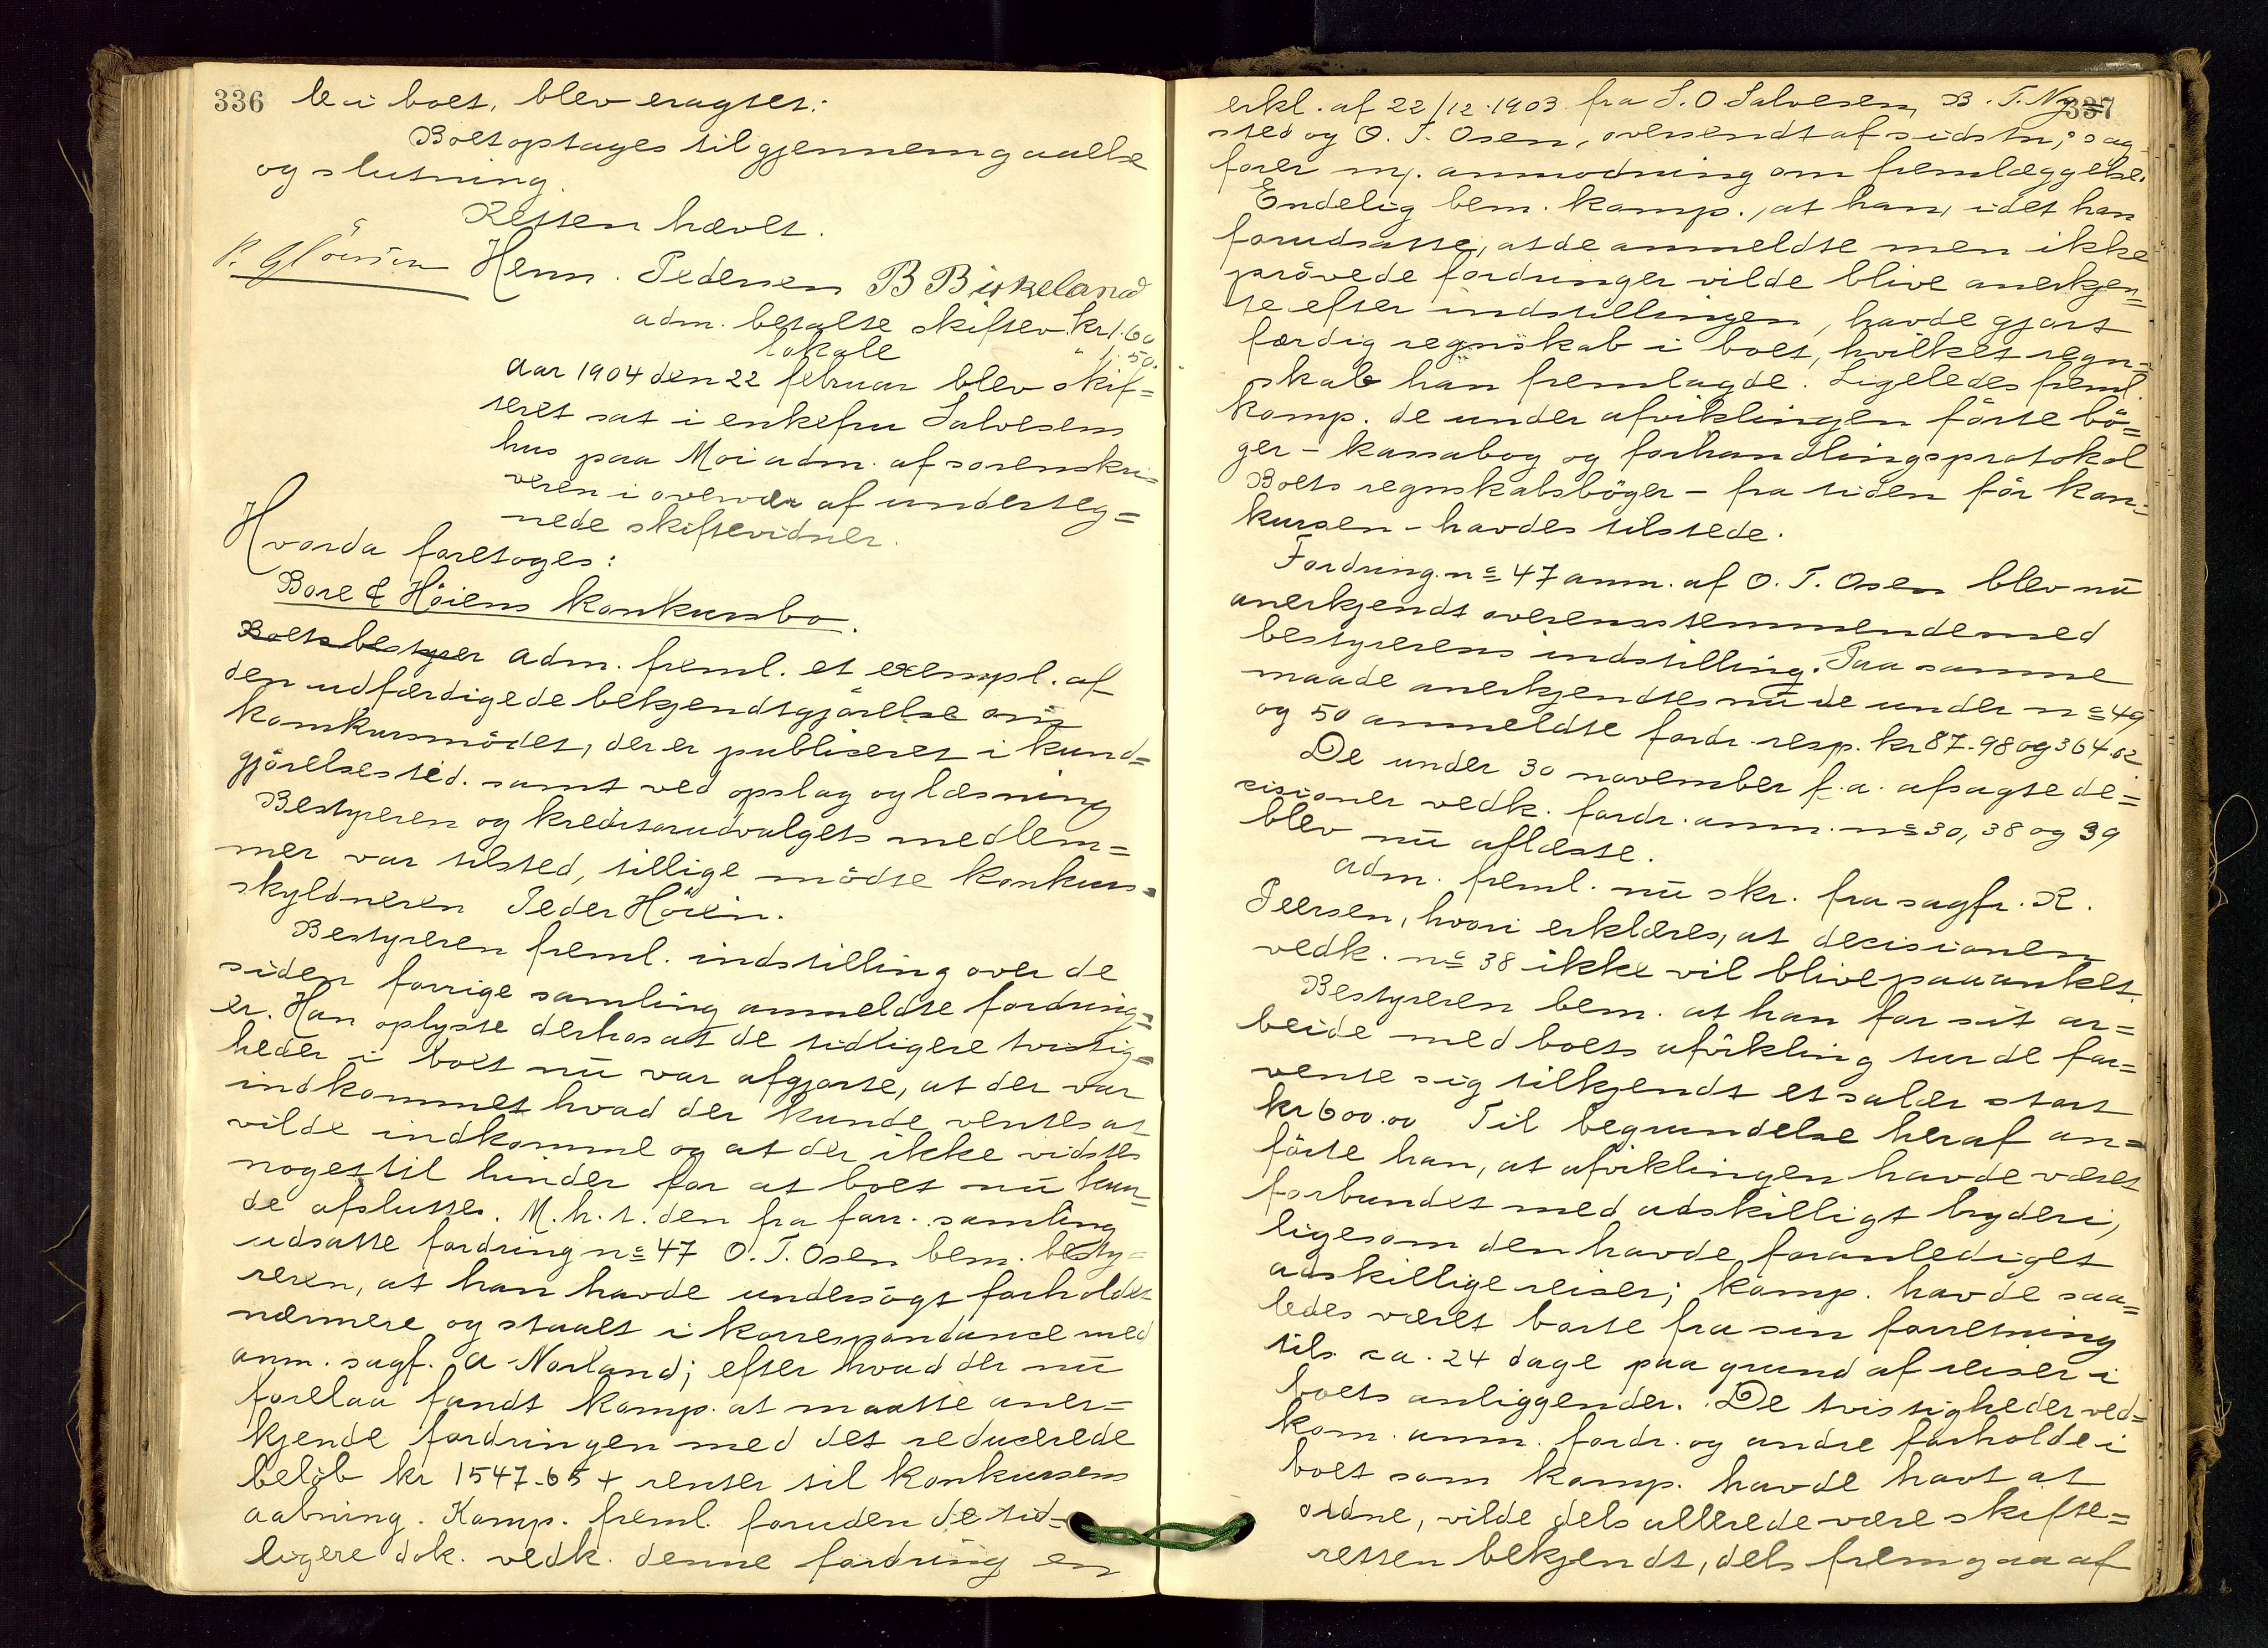 336
le i boet, blev eragtet:
Boet optages til gjennemgaaelse
og slutning.
Retten hævet.
Henn. Pedersen B Birkeland
adm. betalte skiftev. kr 1.60
lokale " 1.50.
Aar 1904 den 22 februar blev skif=
teret sat i enkefru Salvesens
hus paa Moi adm. af sorenskri=
veren i overvær af underteg=
nede skiftevidner.
Hvorda foretoges:
Bore & Höiens konkursbo.
Boets bestyrer adm. freml. et exempl. af
den udfærdigede bekjendtgjörelse om
konkursmödet, der er publiseret i kund=
gjörelsestid. samt ved opslag og læsning
Bestyreren og kreditorudvalgets medlem=
mer var tilsted, tillige mödte konkurs=
skyldneren Peder Höien.
Bestyreren freml. indstilling over de
siden forrige samling anmeldte fordring=
er. Han oplyste derhos at de tidligere tvistig=
heder i boet nu var afgjorte, at der var
indkommet hvad der kunde ventes at
vilde indkomme og at der ikke vidstes
noget til hinder for at boet nu kun=
de afsluttes. M.h.t. den fra forr. samling
udsatte fordring no 47 O. T. Osen bem. besty=
reren, at han havde undersögt forholdet
nærmere og staaet i korrespondance med
anm. sagf. A Norland; efter hvad der nu
forelaa fandt komp. at maatte aner=
kjende fordringen med det reducerede
belöb kr 1547.65 + renter til konkursens
aabning. Komp. freml. foruden de tid=
ligere dok. vedk. denne fordring en
337
erkl. af 22/12.1903 fra S. O Salvesen, B. T. Ny=
sted og O. T. Osen, oversendt af sidstn,s sag
förer m. anmodning om fremlæggelse.
Endelig bem. komp., at han, idet han
forudsatte, at de anmeldte men ikke
prövede fordringer vilde blive anerkjen=
te efter indstillingen, havde gjort
færdig regnskab i boet, hvilket regn=
skab han fremlagde. Ligeledes freml.
komp. de under afviklingen förte bö=
ger – kassabog og forhandlingsprotokol
Boets regnskabsböger – fra tiden för kon=
kursen – havdes tilstede.
Fordring no 47 anm. af O. T. Osen blev nu
anerkjendt overensstemmende med
bestyrerens indstilling. Paa samme
maade anerkjendtes nu de under no 49
og 50 anmeldte fordr. resp. kr 87.98 og 364.62
De under 30 november f.a. afsagte de=
cisioner vedk. fordr. anm. no 30, 38 og 39
blev nu aflæste.
Adm. freml. nu skr. fra sagfr. R.
Peersen, hvori erklæres, at decisionen
vedk. no 38 ikke vil blive paaanket.
Bestyreren bem. at han for sit ar=
beide med boets afvikling turde for=
vente sig tilkjendt et salær stort
kr 600.00 Til begrundelse heraf an=
förte han, at afviklingen havde været
forbundet med adskilligt bryderi,
ligesom den havde foranlediget
adskillige reiser; komp. havde saa=
ledes været borte fra sin forretning
tils. ca. 24 dage paa grund af reiser i
boets anliggender. De tvistigheder ved=
kom. anm. fordr. og andre forholde i
boet som komp. havde havt at
ordne, vilde dels allerede være skifte=
retten bekjendt, dels fremgaa af